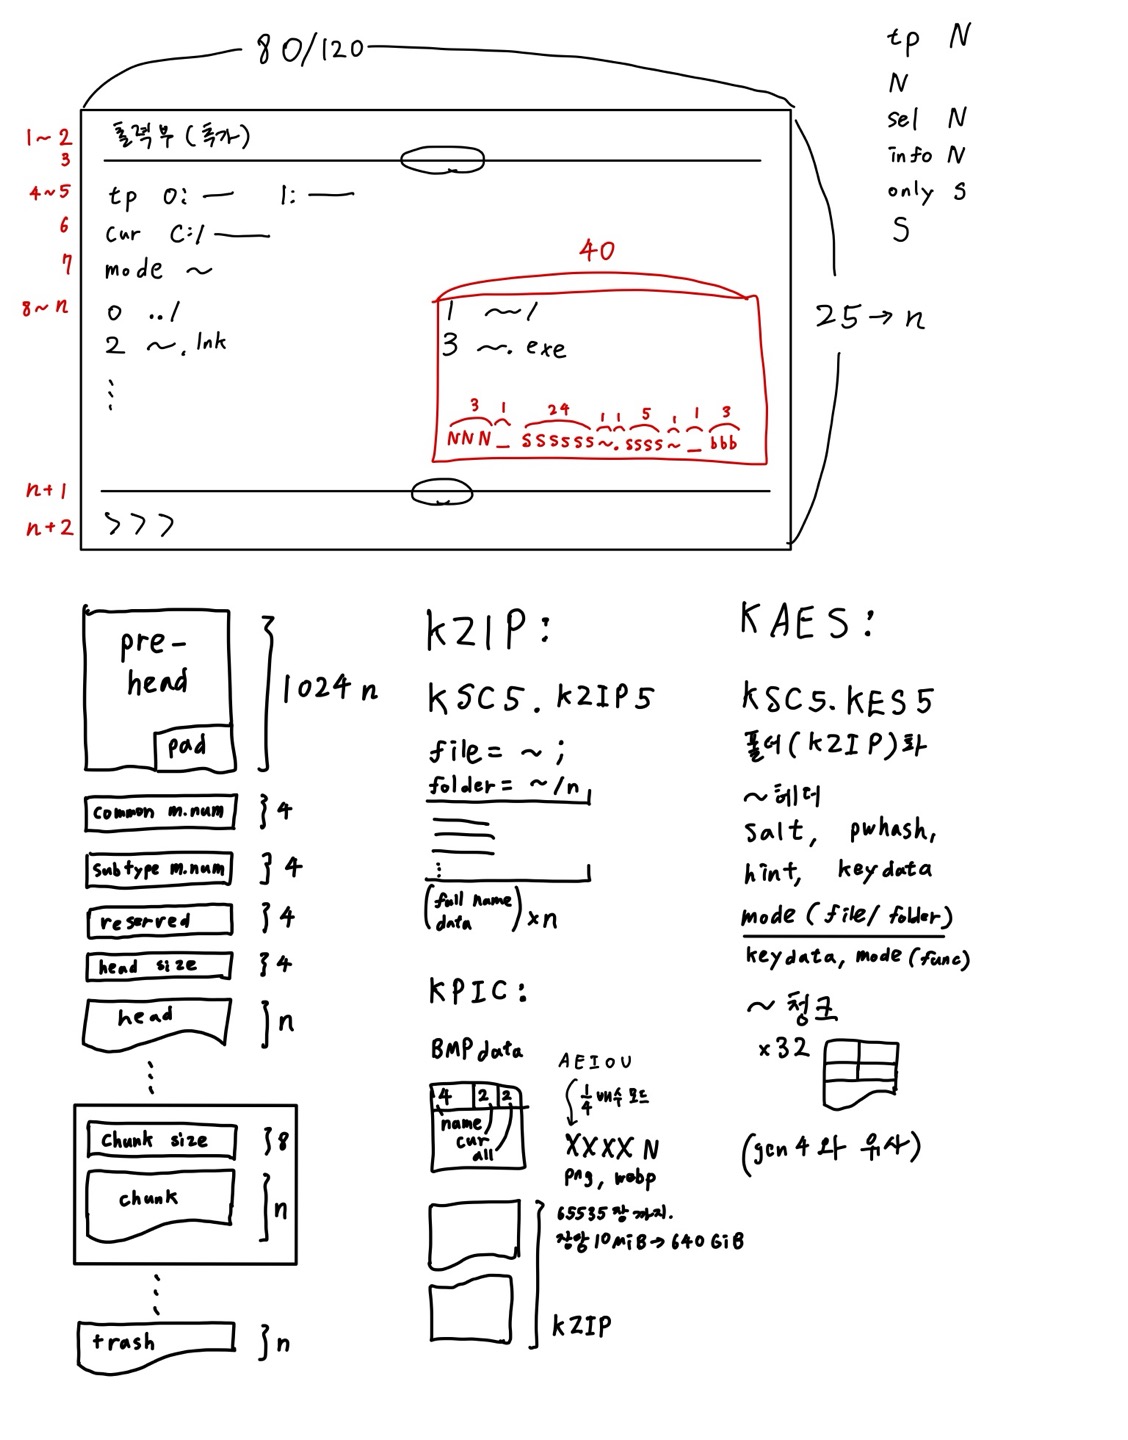 80/120
tp N
N
sel N
info N
only S
S
1~2 출력부 (특가)
3
4~5 tp 0: 1:
6 cur C:/
7 mode ~
40
8~n 0 ../ 1 ~/
2 ~.lnk 3 ~.exe
25→n
3 1 24 1 1 5 1 1 3
NNN_SSSSSS~.ssss~_bbb
n+1
n+2 >>>
pre-
head
pad
1024n
common m.num 4
subtype m.num 4
reserved 4
head size 4
head n
chunk size 8
chunk n
trash n
KZIP:
KSC5.KZIP5
file= ~ ;
folder= ~/n
(full name
data)×n
KPIC:
BMP data
4 2 2
name
cur
all
AEIOU
1/4 배수 모드
XXXX N
png, webp
65535장 까지.
장당 10MiB→640GiB
KZIP
KAES:
KSC5.KES5
폴더(KZIP)화
~헤더
salt, pwhash,
hint, keydata
mode (file/folder)
keydata, mode(func)
~청크
×32
(gen4와 유사)